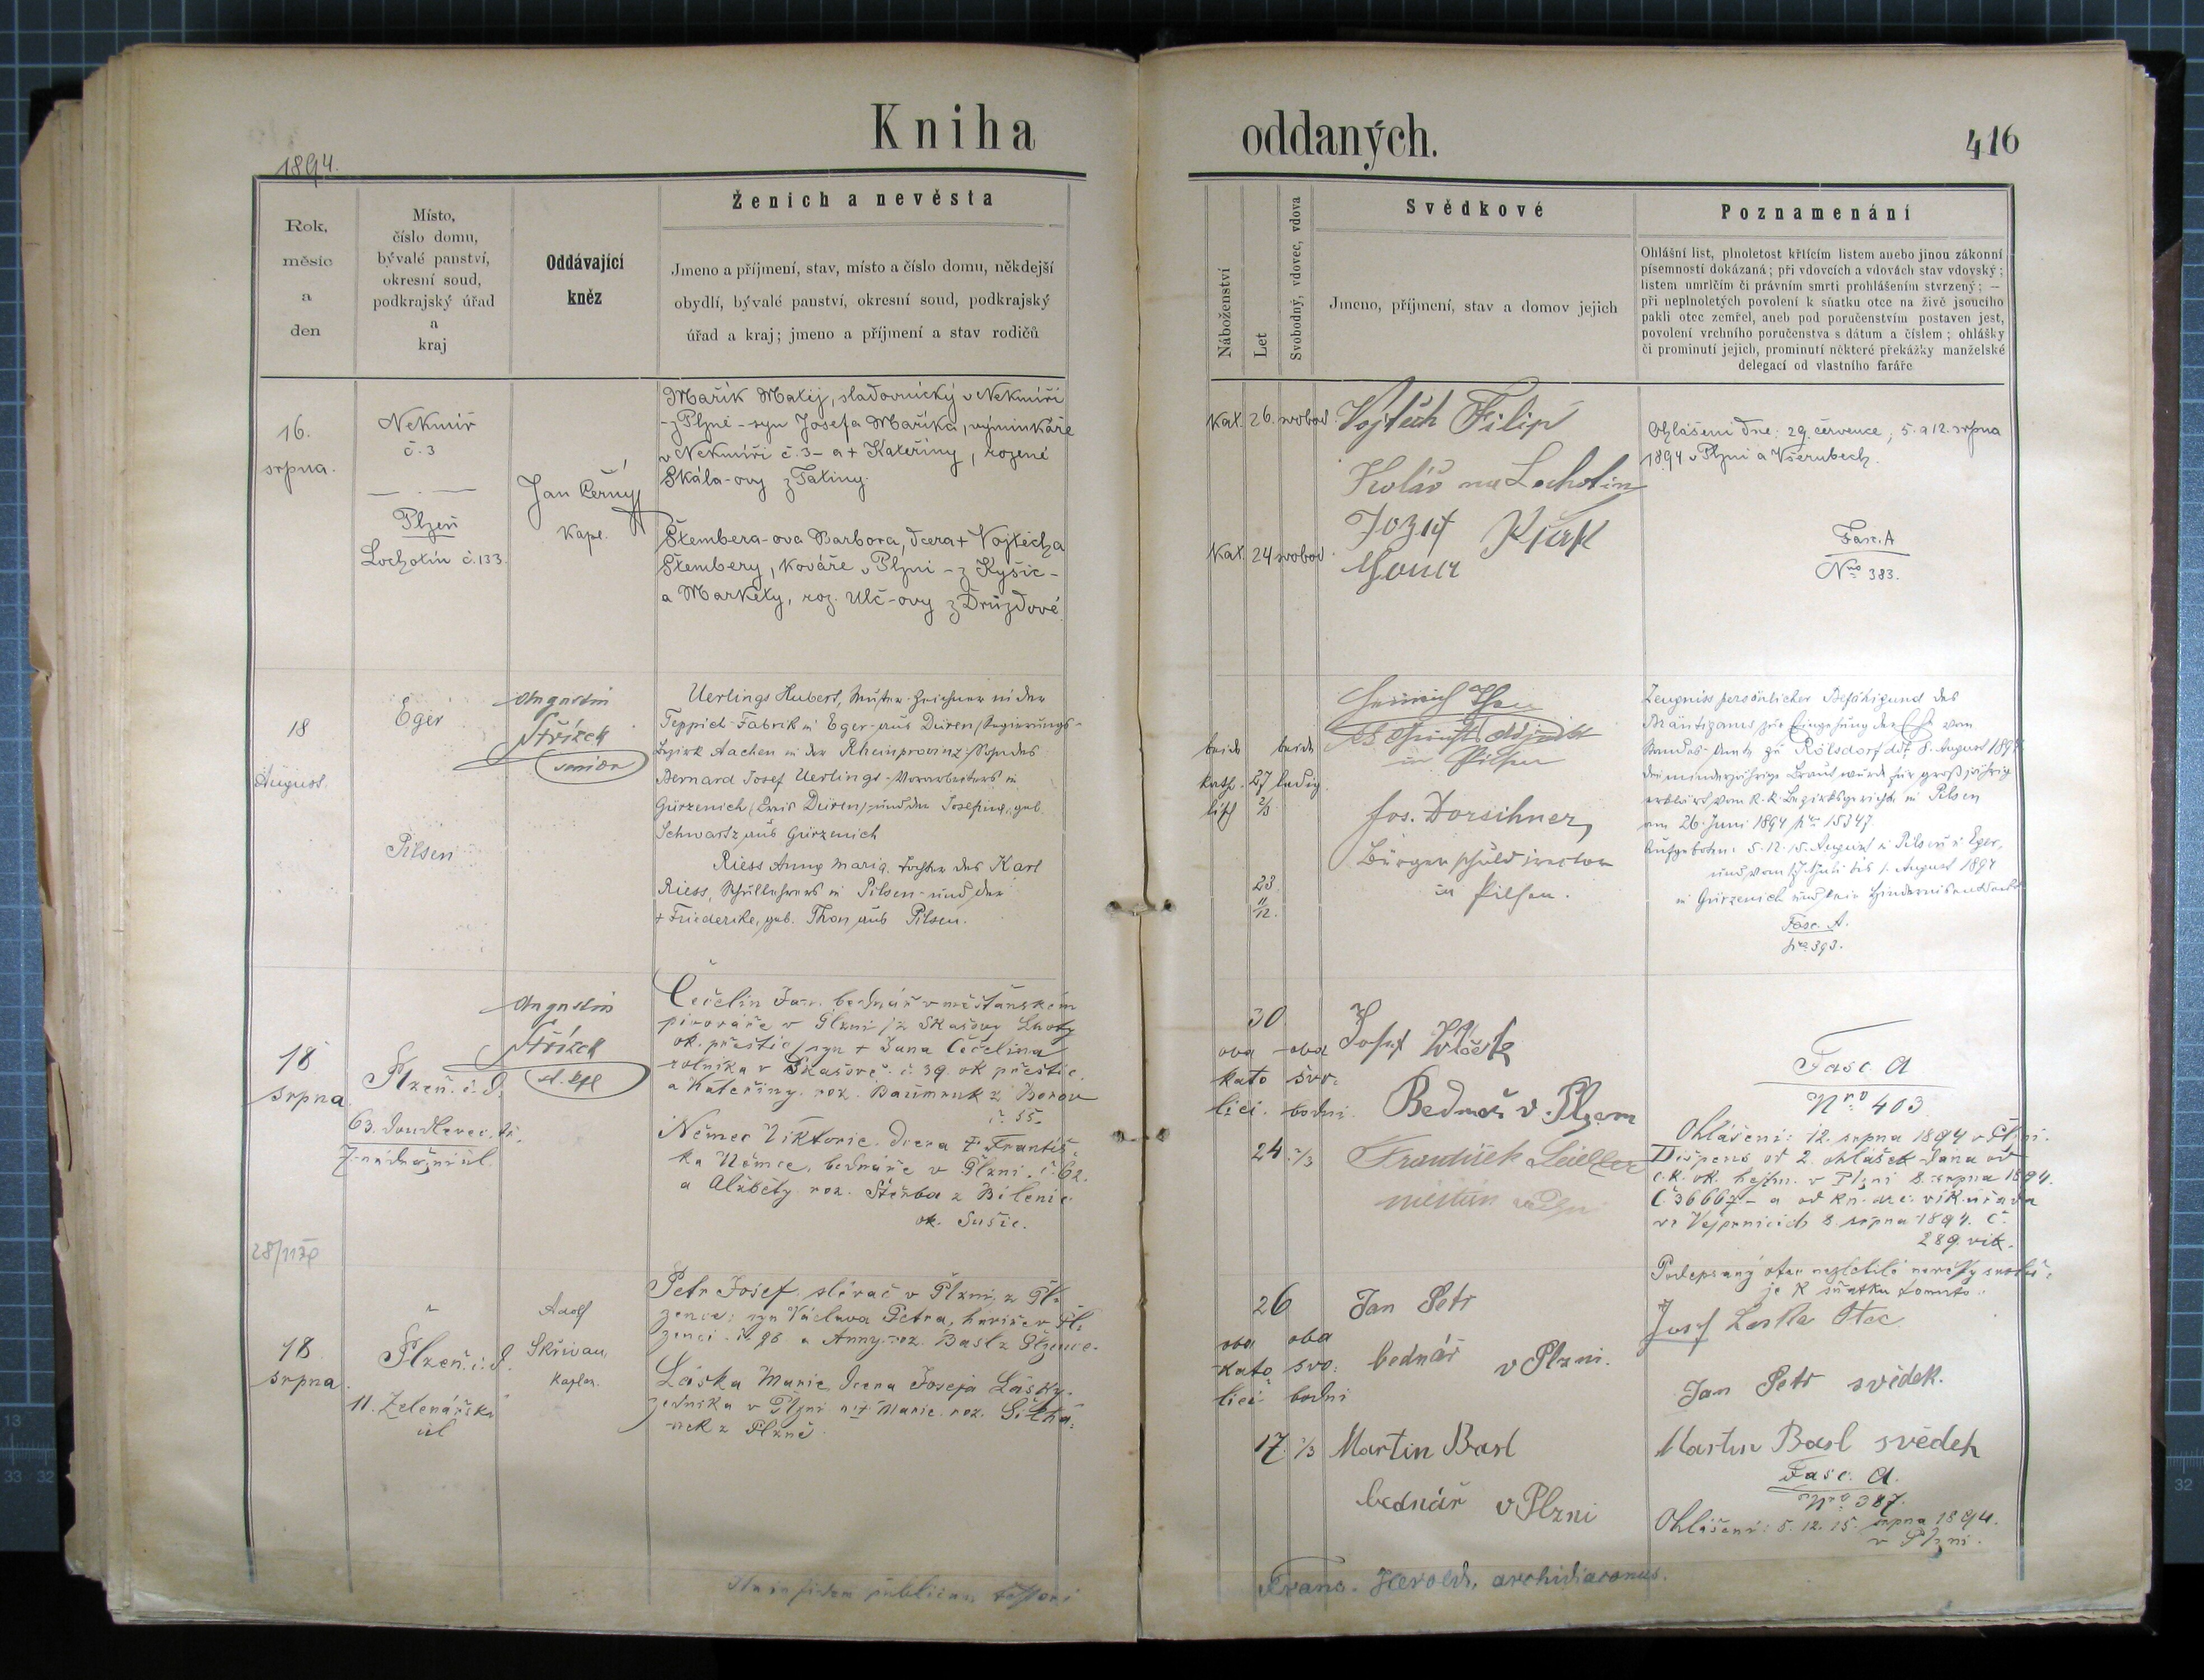 Kniha oddaných.
416
1894.
Rok,
měsíc
a
den
Místo,
číslo domu,
bývalé panství,
okresní soud,
podkrajský úřad
a
kraj
Oddávající
kněz
Ženich a nevěsta
Jmeno a příjmení, stav, místo a číslo domu, někdejší
obydlí, bývalé panství, okresní soud, podkrajský
úřad a kraj; jmeno a příjmení a stav rodičů
Náboženství
Let
Svobodný, vdovec, vdova
Svědkové
Jmeno, příjmení, stav a domov jejich
Poznamenání
Ohlášní list, plnoletost křtícím listem anebo jinou zákonní
písemností dokázaná; při vdovcích a vdovách stav vdovský;
listem umrlčím či právním smrti prohlášením stvrzený; —
při neplnoletých povolení k sňatku otce na živě jsoucího
pakli otec zemřel, aneb pod poručenstvím postaven jest,
povolení vrchního poručenstva s dátum a číslem; ohlášky
či prominutí jejich, prominutí některé překážky manželské
delegací od vlastního faráře
16.
srpna.
Nekmíř
č. 3
Plzeň
Lochotín č. 133.
Jan Černý
kapl.
Mařík Matěj, sladovnický v Nekmíři
- z Plzně - syn Josefa Maříka, výminkáře
v Nekmíři č. 3 - a + Kateřiny, rozené
Skála-ovy z Tatiny.
Štembera-ova Barbora, dcera + Vojtěcha
Štembery, kováře v Plzni - z Kyšic -
a Markéty, roz. Ulč-ovy z Druzdové.
Kat. 26. svobod.
Kat. 24 svobod.
Vojtěch Filip
Kolář na Lochotín
Ohlášení dne: 29. července, 5. a 12. srpna
1894 v Plzni a Všerubech.
Fasc. A
Nro 383.
18
August.
Eger
Pilsen
Augustin
Střížek
senior
Uerlings Hubert, Muster-Zeichner in der
Teppich-Fabrik in Eger - aus Düren, Regierungs-
bezirk Aachen in der Rheinprovinz, Sohn des
Bernard Josef Uerlings - Vorarbeiters in
Gürzenich, Kreis Düren, und der Josefine, geb.
Schwartz aus Gürzenich
Riess Anna Maria, Tochter des Karl
Riess, Schullehrers in Pilsen - und der
+ Friederike, geb. Thon aus Pilsen.
beide beide
kath. 27 ledig.
lisch
23
11/12.
in Pilsen
Jos. Dorschner,
Bürgerschuldirector
in Pilsen.
Zeugniss persönlicher Befähigung des
Bräutigams zur Eingehung der Ehe vom
Standes-Amte zu Rölsdorf ddt. 8. August 1894
die minderjährige Braut wurde für großjährig
erklärt vom k. k. Bezirksgericht in Pilsen
am 26. Juni 1894 Nro 15347.
Aufgeboten: 5. 12. 15. August in Pilsen u. Eger,
und vom 17. Juli bis 1. August 1894
in Gürzenich und kein Hinderniss entdeckt
Fasc. A.
Nro 393.
18
srpna
Plzeň. č. d.
63. Doudlevec. tř.
7. nádražní ul.
Augustin
Střížek
st. kpl
Čečelin Jan. bednář v měšťanském
pivováře v Plzni / z Skašovy Lhoty
ok. přeštic / syn + Jana Čečelina
rolníka v Skašově č. 39. ok přeštic
a Kateřiny. roz. Baumruk z Borov
č. 55.
Němec Viktorie. dcera + Františ-
ka Němce, bednáře v Plzni. č 62.
a Alžběty roz. Stěrba z Bílenic
ok. Sušic.
30
oba oba
kato svo-
lici. bodni.
24. 2/3
Josef Vlček
Bednář v Plzni
František
měšťan v Plzni
Fasc. A
Nro 403
Ohlášení: 12. srpna 1894 v Plzni.
Dispens od 2. ohlášek dána od
c. k. ok. hejtm. v Plzni 8. srpna 1894.
č 36667 - a od kn. arc. vik. úřadu
ve Vejprnicích 8. srpna 1894. č.
289 vik.
18
srpna
Plzeň. č. d.
11. Zelenářská
ul
Adolf
Skřivan,
kaplan.
Petr Josef. slévač v Plzni, z Pl-
zence; syn Václava Petra, havíře v Pl-
zenci. č. 96. a Anny. roz. Basl z Plzence.
Láska Marie, dcera Josefa Lásky.
zedníka v Plzni a + Marie. roz. Sitha-
nek z Plzně.
26
oba oba
kato svo-
lici bodni
17. 2/3
Jan Petr
bednář v Plzni.
Martin Basl
bednář v Plzni
Podepsaný otec nezletilé nevěsty svoluj-
je k sňatku tomuto.
Josef Laska Otec
Jan Petr svědek.
Martin Basl svědek
Fasc. A.
Nro 387.
Ohlášení: 5. 12. 15. srpna 1894.
v Plzni.
Franc. Herold, archidiaconus.